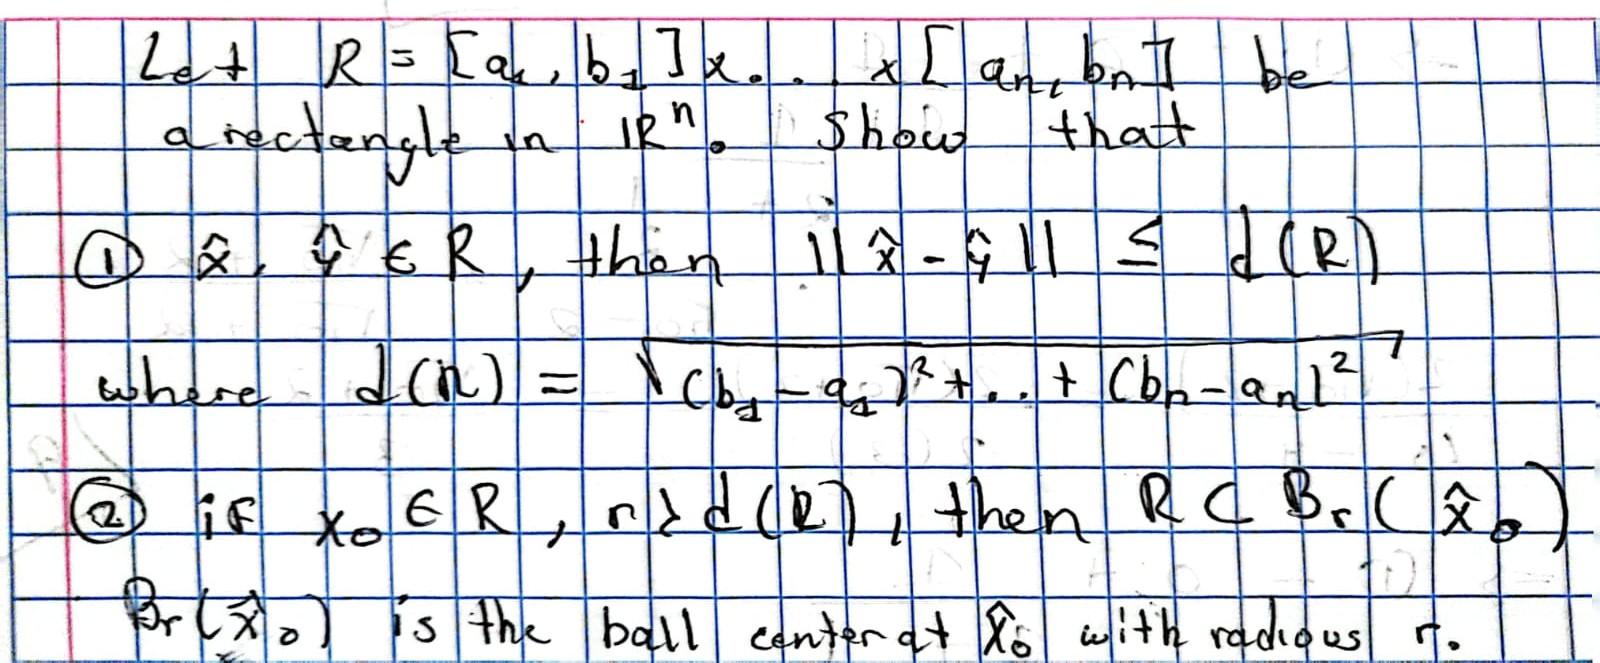 Let R = [a₁, b₁] x . . . x [aₙ, bₙ] be
a rectangle in ℝⁿ. Show that
① x̂, ŷ ∈ R, then ||x̂ - ŷ|| ≤ d(R)
where d(R) = √((b₁-a₁)²+..+(bₙ-aₙ)²)
② if x₀ ∈ R, r > d(R), then R ⊂ Bᵣ(x̂₀)
Bᵣ(x̂₀) is the ball center at x̂₀ with radious r.